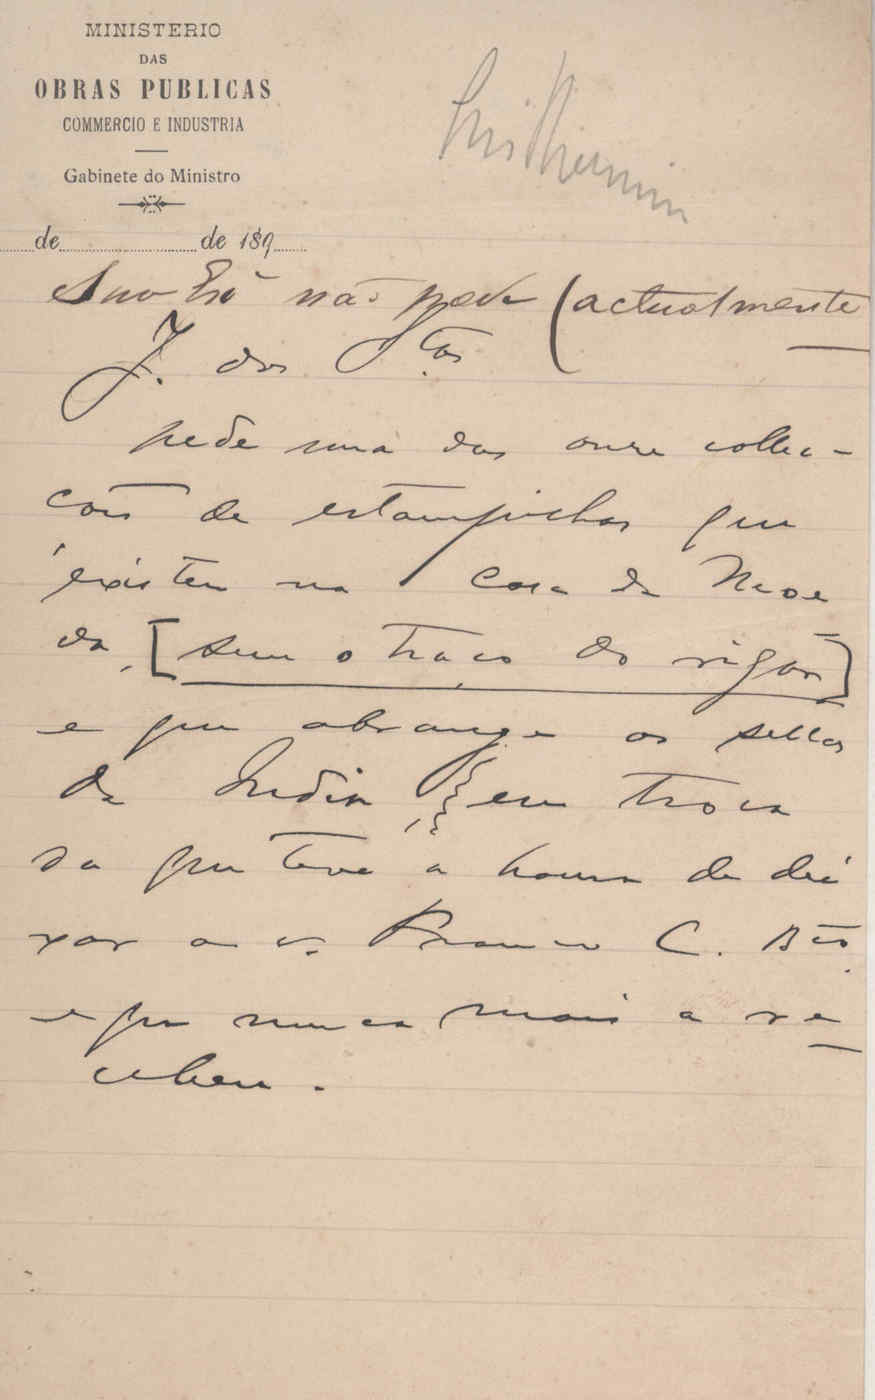 MINISTERIO
DAS
OBRAS PUBLICAS
COMMERCIO E INDUSTRIA
Gabinete do Ministro
de de 189
não pode (actualmente
J. dos S.tos
pede uma das onze collec-
cões de estampilhas que
existem na Casa da Moe
da, [sem o traço do rigôr]
e que abrange os sellos
da India, } em troca
da que teve a honra de dei
xar a v. C.
e que nunca mais a re
cebeu.